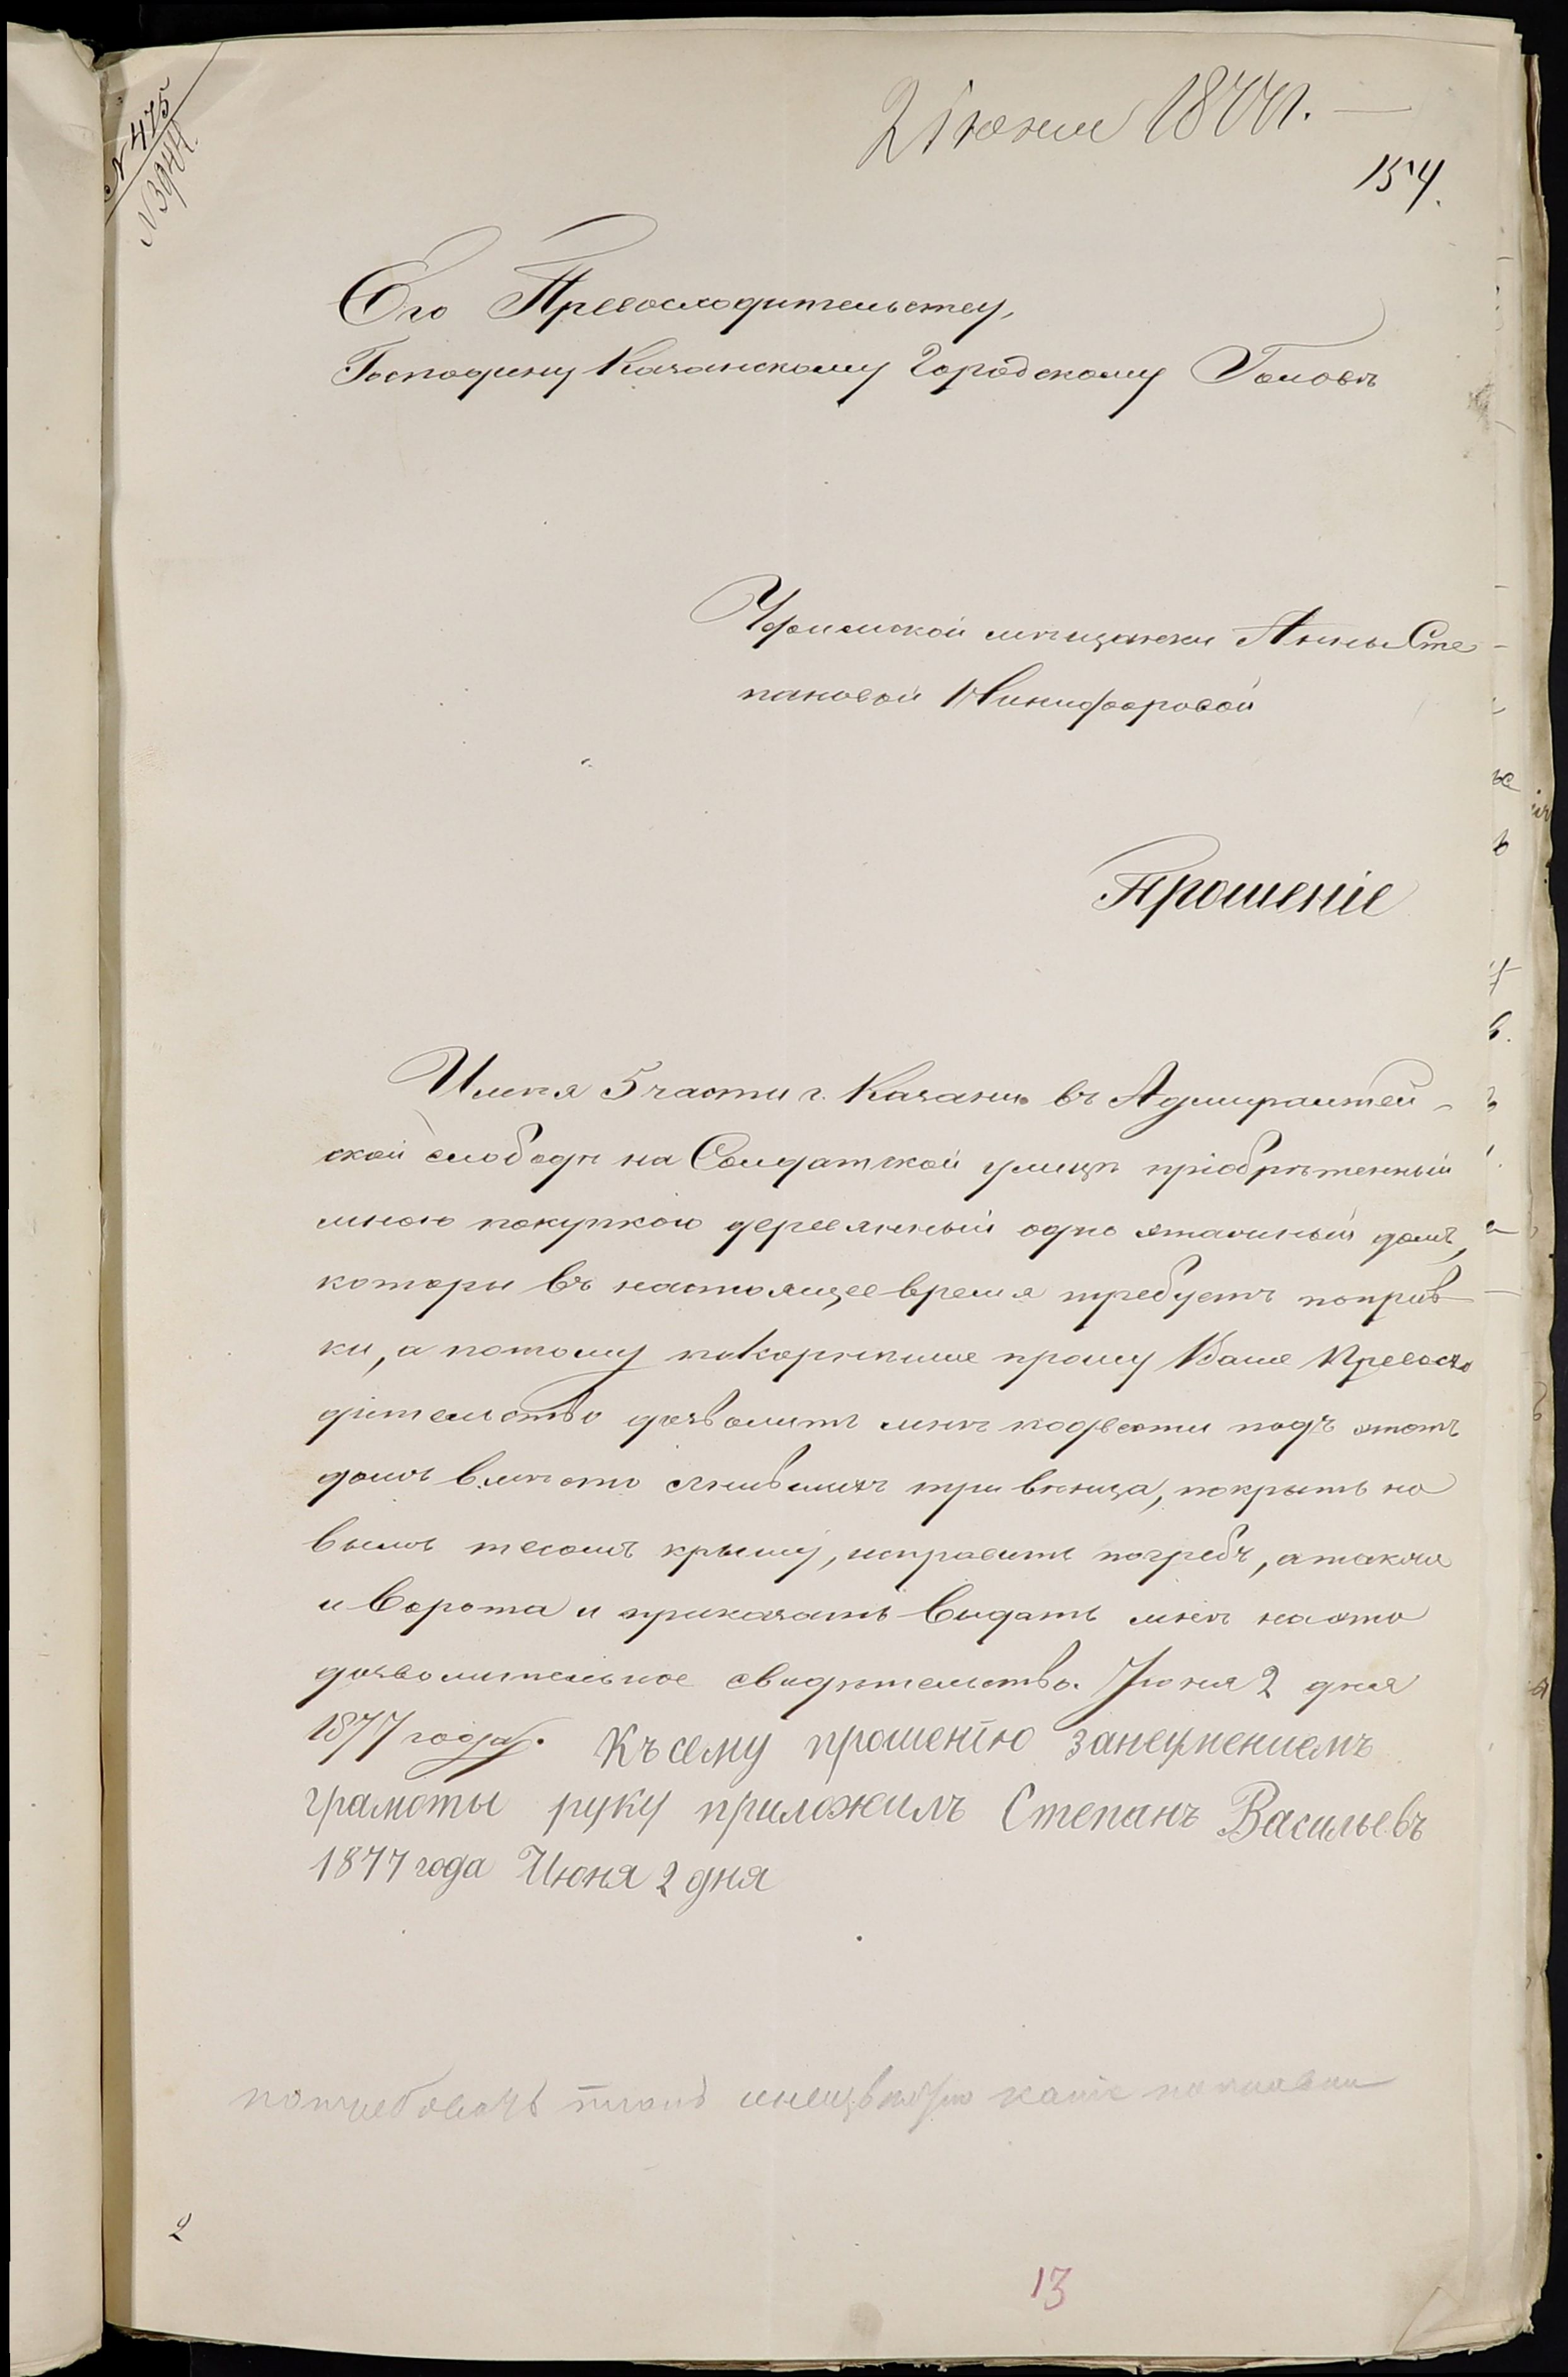 N 475
2 Іюня 1877 г.
154.
Его Превосходительству,
Господину Казанскому Городскому Головѣ
Уфимской мѣщанки Анны Сте-
пановой Никифоровой
Прошеніе
Имѣя 5 части г. Казани въ Адмиралтей-
ской слободѣ на Солдатской улицѣ пріобрѣтенный
мною покупкою деревянный одно этажный домъ,
которы въ настоящее время требуетъ поправ-
ки, а потому покорнѣйше прошу Ваше Превосхо
дительство дозволить мнѣ подвести подъ этотъ
домъ вмѣсто сгнившихъ три вѣнца, покрыть но
вымъ тесомъ крышу, исправить погребъ, а также
и ворота и приказать выдать мнѣ на это
дозволительное свидѣтельство. Іюня 2 дня
1877 года. Къ сему прошенію занеумениемъ
грамоты руку приложилъ Степанъ Васильевъ
1877 года Июня 2 дня
потребовать планъ
2
13